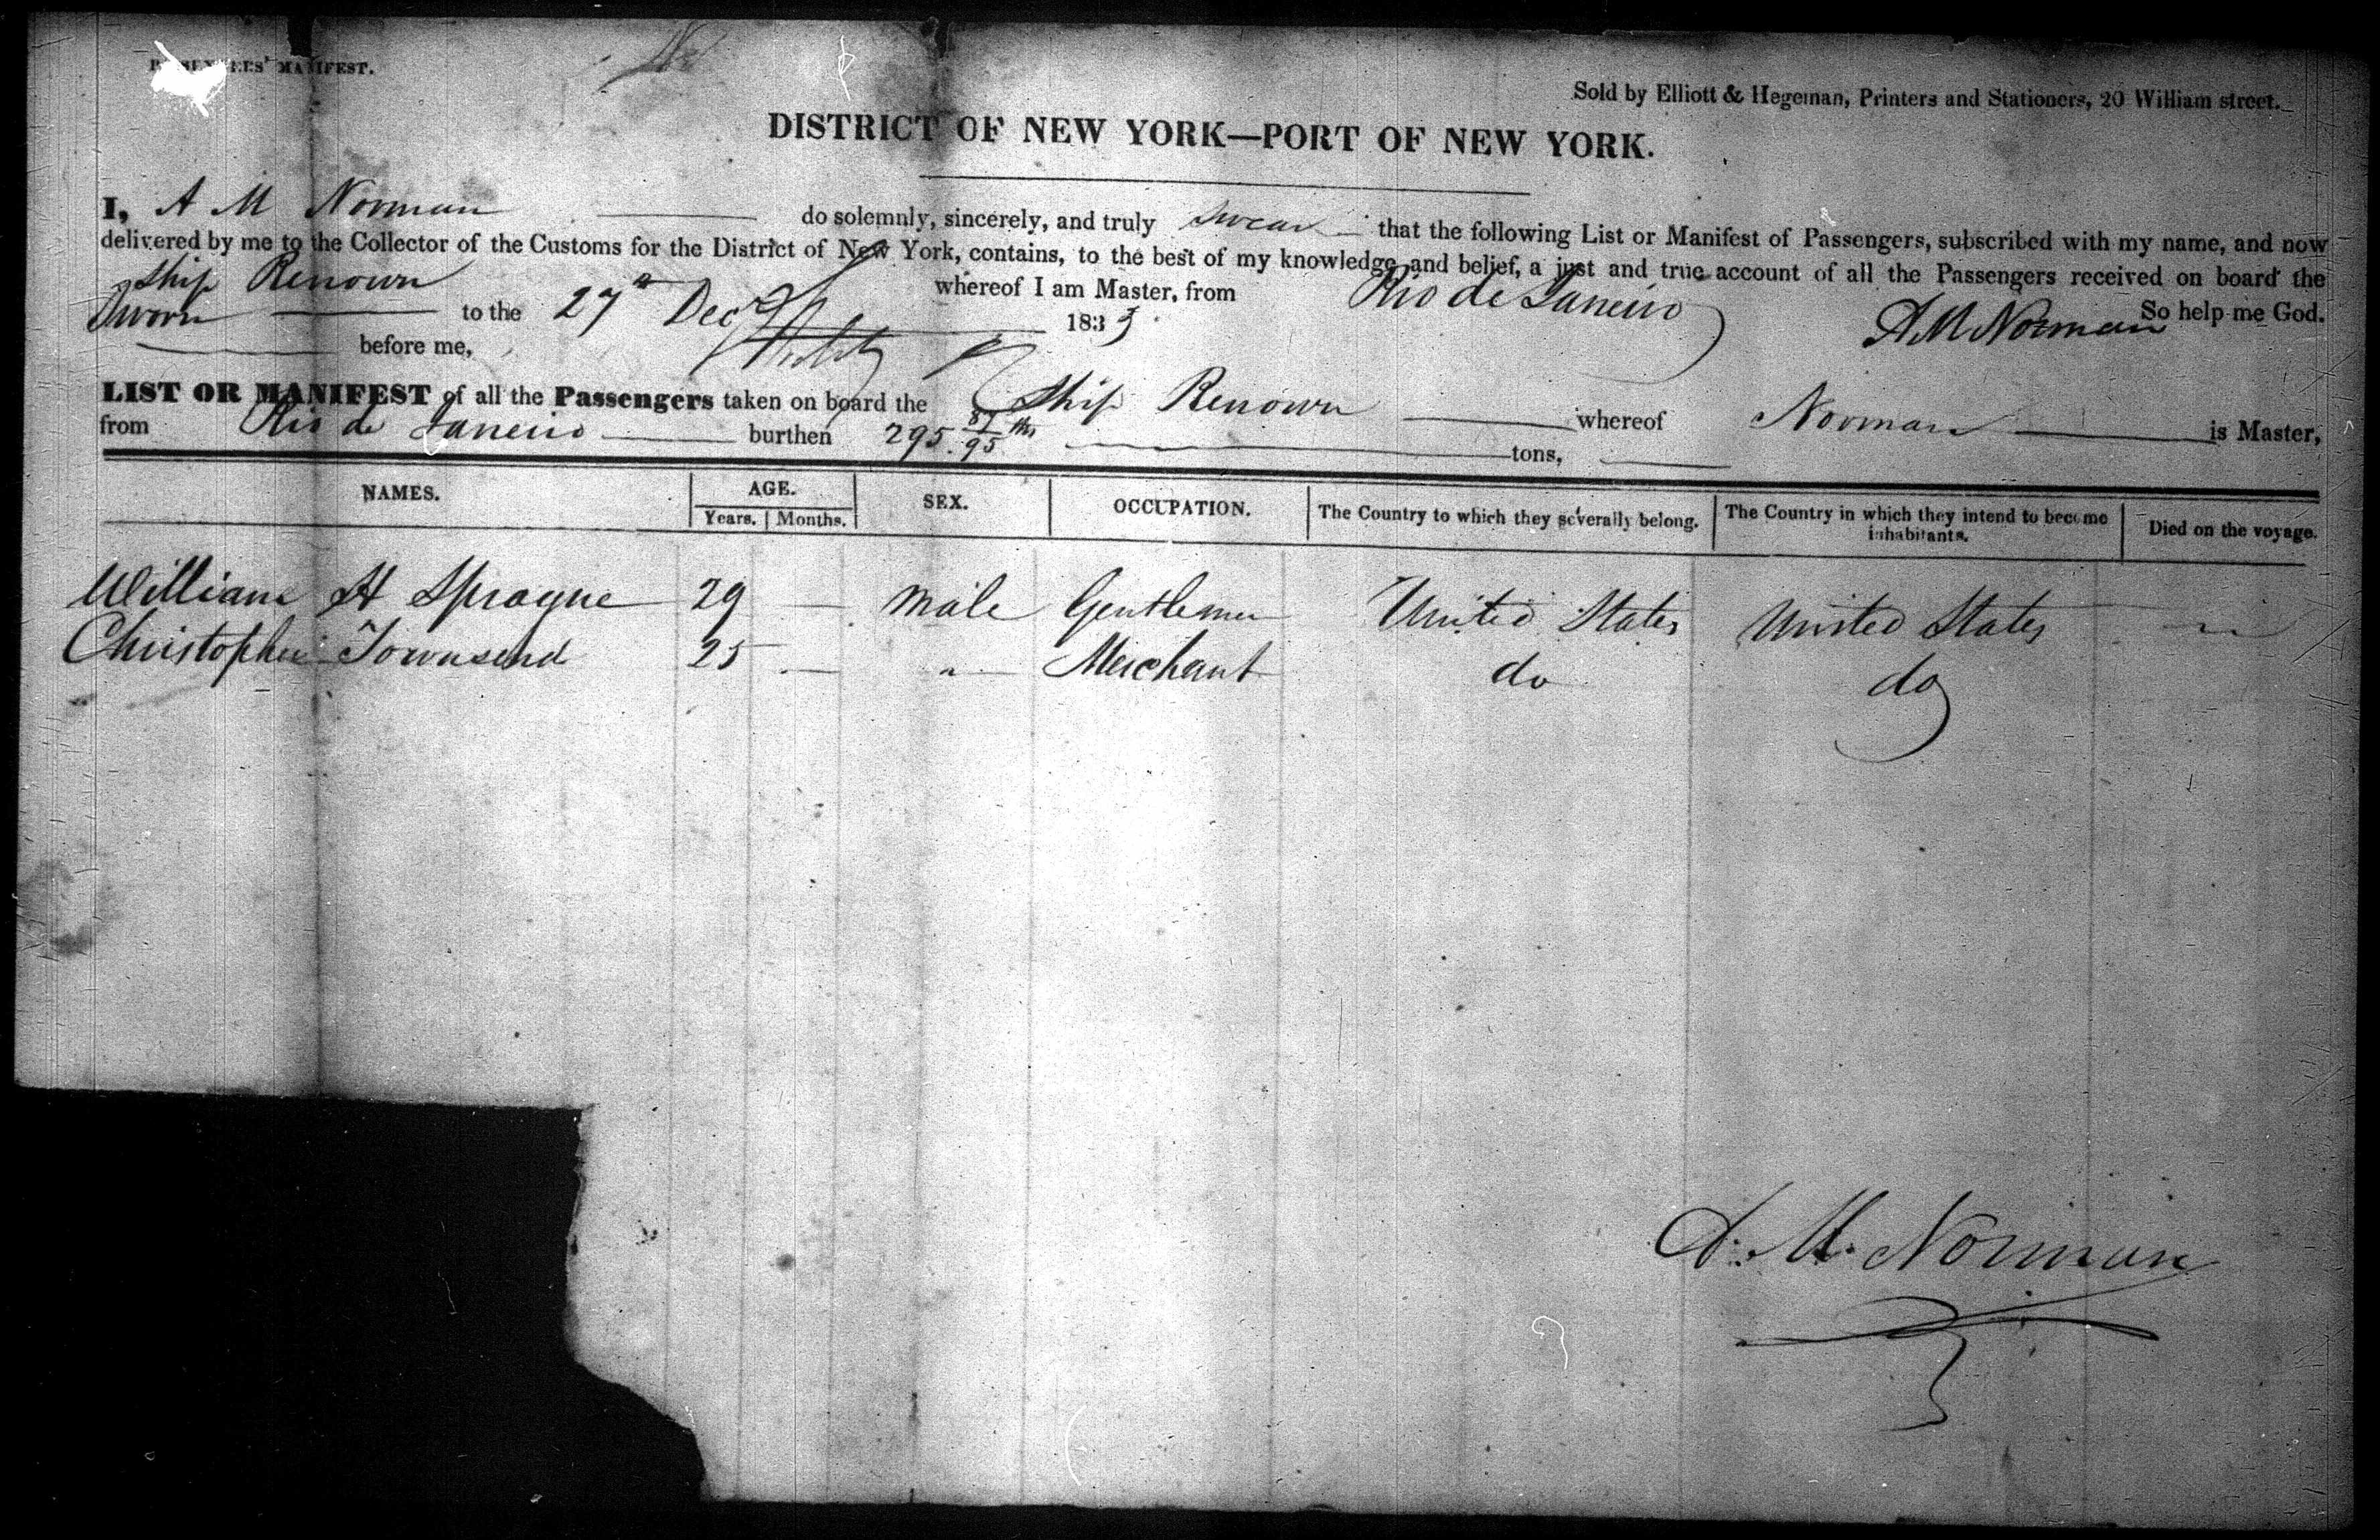 PASSENGERS' MANIFEST.
Sold by Elliott & Hegeman, Printers and Stationers, 20 William street.
DISTRICT OF NEW YORK—PORT OF NEW YORK.
I, A M Norman do solemnly, sincerely, and truly swear that the following List or Manifest of Passengers, subscribed with my name, and now
delivered by me to the Collector of the Customs for the District of New York, contains, to the best of my knowledge and belief, a just and true account of all the Passengers received on board the
Ship Renown whereof I am Master, from Rio de Janeiro So help me God.
Sworn to the 27th Decr 1833 A M Norman
before me,
LIST OR MANIFEST of all the Passengers taken on board the Ship Renown whereof Norman is Master,
from Rio de Janeiro burthen 295 87/95 ths tons,
NAMES. AGE. SEX. OCCUPATION. The Country to which they severally belong. The Country in which they intend to become inhabitants. Died on the voyage.
Years. Months.
William H Sprague 29 — Male Gentlemen United States United States —
Christopher Townsend 25 — " Merchant do do
A. M. Norman